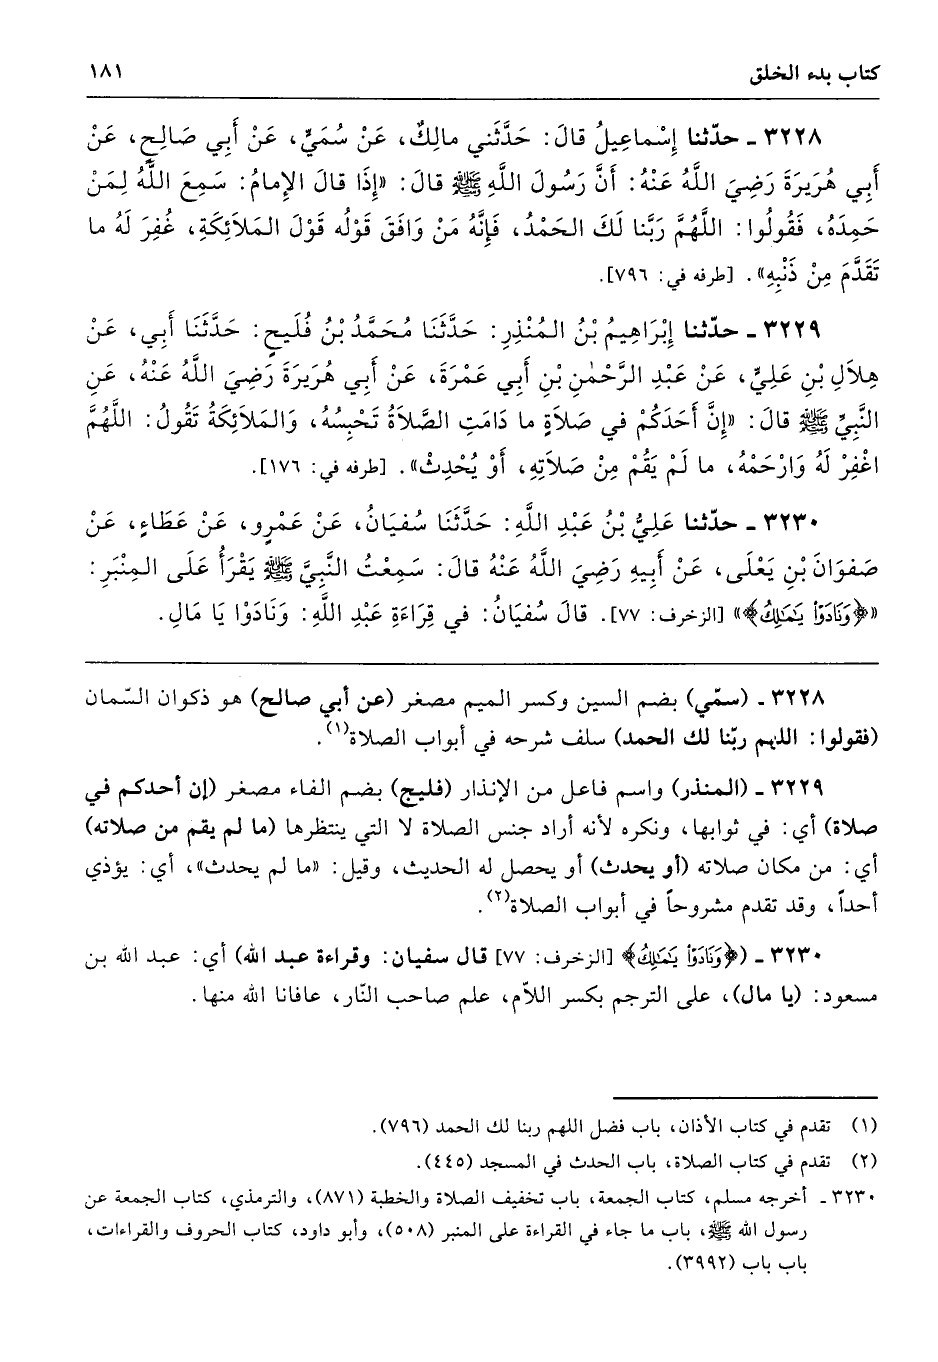 كتاب بدء الخلق ١٨١
٣٢٢٨ ـ حدّثنا إِسْماعِيلُ قالَ: حَدَّثَني مالِكٌ، عَنْ سُمَيٍّ، عَنْ أَبِي صَالِحٍ، عَنْ
أَبِي هُرَيرَةَ رَضِيَ اللَّهُ عَنْهُ: أَنَّ رَسُولَ اللَّهِ ﷺ قالَ: «إِذَا قالَ الإِمامُ: سَمِعَ اللَّهُ لِمَنْ
حَمِدَهُ، فَقُولُوا: اللَّهُمَّ رَبَّنا لَكَ الحَمْدُ، فَإِنَّهُ مَنْ وَافَقَ قَوْلُه قَوْلَ المَلاَئِكَةِ، غُفِرَ لَهُ ما
تَقَدَّمَ مِنْ ذَنْبِهِ». [طرفه في: ٧٩٦].
٣٢٢٩ ـ حدّثنا إِبْرَاهِيمُ بْنُ المُنْذِرِ: حَدَّثَنَا مُحَمَّدُ بْنُ فُلَيحٍ: حَدَّثَنَا أَبي، عَنْ
هِلاَلِ بْنِ عَلِيٍّ، عَنْ عَبْدِ الرَّحْمٰنِ بْنِ أَبي عَمْرَةَ، عَنْ أَبي هُرَيرَةَ رَضِيَ اللَّهُ عَنْهُ، عَنِ
النَّبِيِّ ﷺ قالَ: «إِنَّ أَحَدَكُمْ في صَلاَةٍ ما دَامَتِ الصَّلاَةُ تَحْبِسُهُ، وَالمَلاَئِكَةُ تَقُولُ: اللَّهُمَّ
اغْفِرْ لَهُ وَارْحَمْهُ، ما لَمْ يَقُمْ مِنْ صَلاَتِهِ، أَوْ يُحْدِثْ». [طرفه في: ١٧٦].
٣٢٣٠ ـ حدّثنا عَلِيُّ بْنُ عَبْدِ اللَّهِ: حَدَّثَنَا سُفيَانُ، عَنْ عَمْرٍو، عَنْ عَطَاءٍ، عَنْ
صَفوَانَ بْنِ يَعْلَى، عَنْ أَبِيهِ رَضِيَ اللَّهُ عَنْهُ قالَ: سَمِعْتُ النَّبِيَّ ﷺ يَقْرَأُ عَلَى المِنْبَرِ:
«﴿وَنَادَوۡاْ يَٰمَٰلِكُ﴾» [الزخرف: ٧٧]. قالَ سُفيَانُ: في قِرَاءَةِ عَبْدِ اللَّهِ: وَنَادَوْا يَا مَالِ.
٣٢٢٨ ـ (سمّي) بضم السين وكسر الميم مصغر (عن أبي صالح) هو ذكوان السّمان
(فقولوا: اللهم ربّنا لك الحمد) سلف شرحه في أبواب الصلاة(١).
٣٢٢٩ ـ (المنذر) واسم فاعل من الإنذار (فليح) بضم الفاء مصغر (إن أحدكم في
صلاة) أي: في ثوابها، ونكره لأنه أراد جنس الصلاة لا التي ينتظرها (ما لم يقم من صلاته)
أي: من مكان صلاته (أو يحدث) أو يحصل له الحديث، وقيل: «ما لم يحدث»، أي: يؤذي
أحداً، وقد تقدم مشروحاً في أبواب الصلاة(٢).
٣٢٣٠ ـ (﴿وَنَادَوۡاْ يَٰمَٰلِكُ﴾ [الزخرف: ٧٧] قال سفيان: وقراءة عبد الله) أي: عبد الله بن
مسعود: (يا مال)، على الترجم بكسر اللاّم، علم صاحب النّار، عافانا الله منها.
(١) تقدم في كتاب الأذان، باب فضل اللهم ربنا لك الحمد (٧٩٦).
(٢) تقدم في كتاب الصلاة، باب الحدث في المسجد (٤٤٥).
٣٢٣٠ ـ أخرجه مسلم، كتاب الجمعة، باب تخفيف الصلاة والخطبة (٨٧١)، والترمذي، كتاب الجمعة عن
رسول الله ﷺ، باب ما جاء في القراءة على المنبر (٥٠٨)، وأبو داود، كتاب الحروف والقراءات،
باب باب (٣٩٩٢).